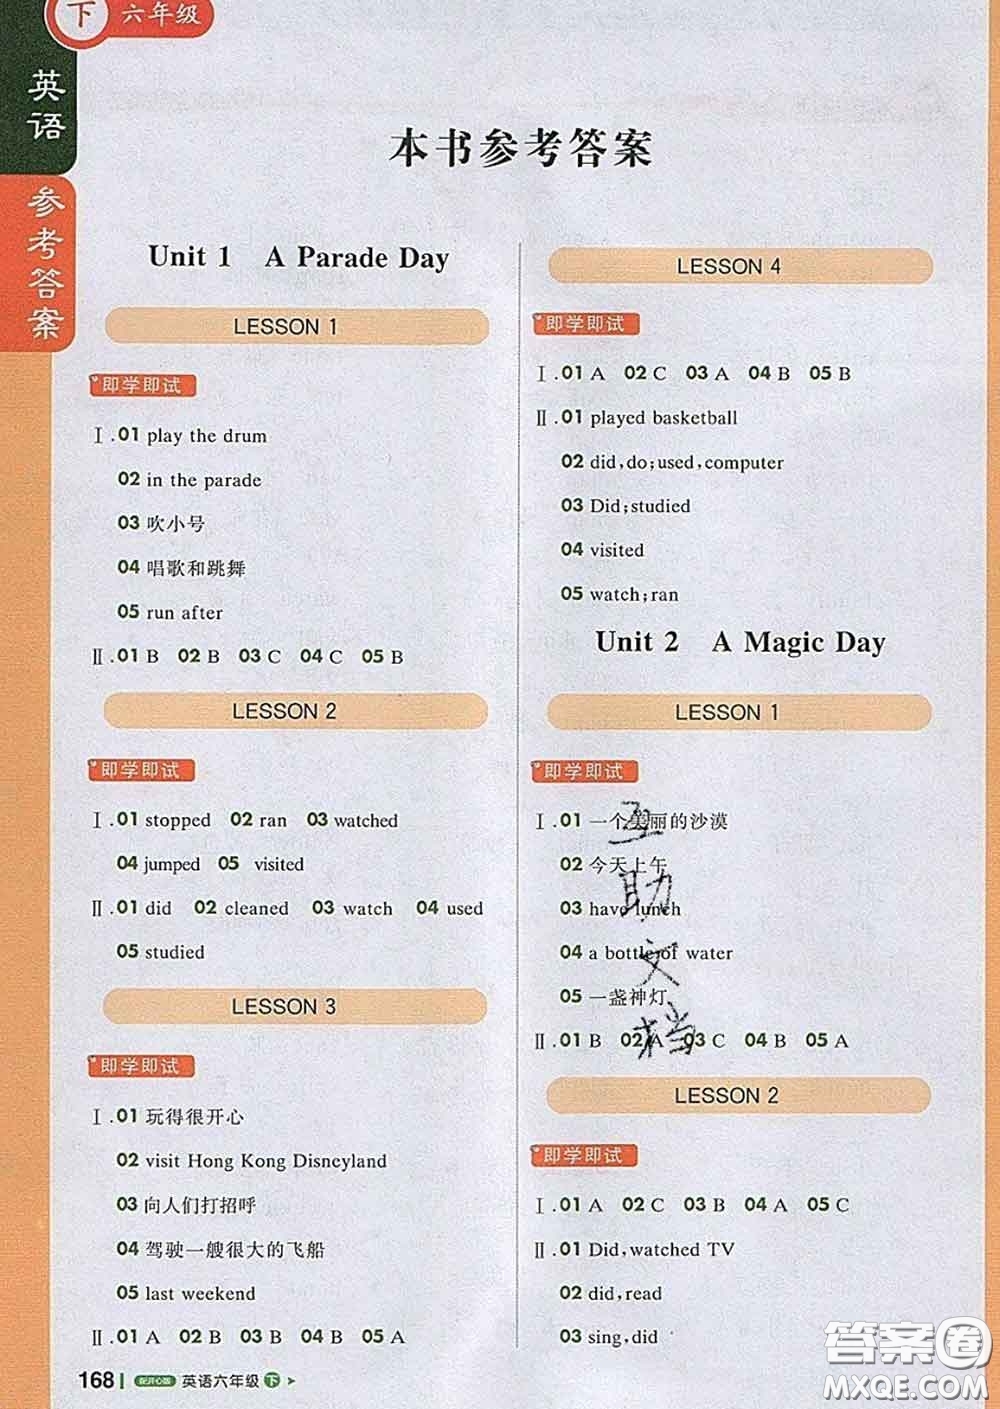 下 六年级
英语
参考答案
本书参考答案
Unit 1 A Parade Day
LESSON 1
即学即试
Ⅰ.01 play the drum
02 in the parade
03 吹小号
04 唱歌和跳舞
05 run after
Ⅱ.01 B 02 B 03 C 04 C 05 B
LESSON 2
即学即试
Ⅰ.01 stopped 02 ran 03 watched
04 jumped 05 visited
Ⅱ.01 did 02 cleaned 03 watch 04 used
05 studied
LESSON 3
即学即试
Ⅰ.01 玩得很开心
02 visit Hong Kong Disneyland
03 向人们打招呼
04 驾驶一艘很大的飞船
05 last weekend
Ⅱ.01 A 02 B 03 B 04 B 05 A
LESSON 4
即学即试
Ⅰ.01 A 02 C 03 A 04 B 05 B
Ⅱ.01 played basketball
02 did,do;used,computer
03 Did;studied
04 visited
05 watch;ran
Unit 2 A Magic Day
LESSON 1
即学即试
Ⅰ.01 一个美丽的沙漠
02 今天上午
03 have lunch
04 a bottle of water
05 一盏神灯
Ⅱ.01 B 02 A 03 C 04 B 05 A
LESSON 2
即学即试
Ⅰ.01 A 02 C 03 B 04 A 05 C
Ⅱ.01 Did,watched TV
02 did,read
03 sing,did
互助文档
168 配开心版 英语六年级 下
答案圈
MXQE.COM